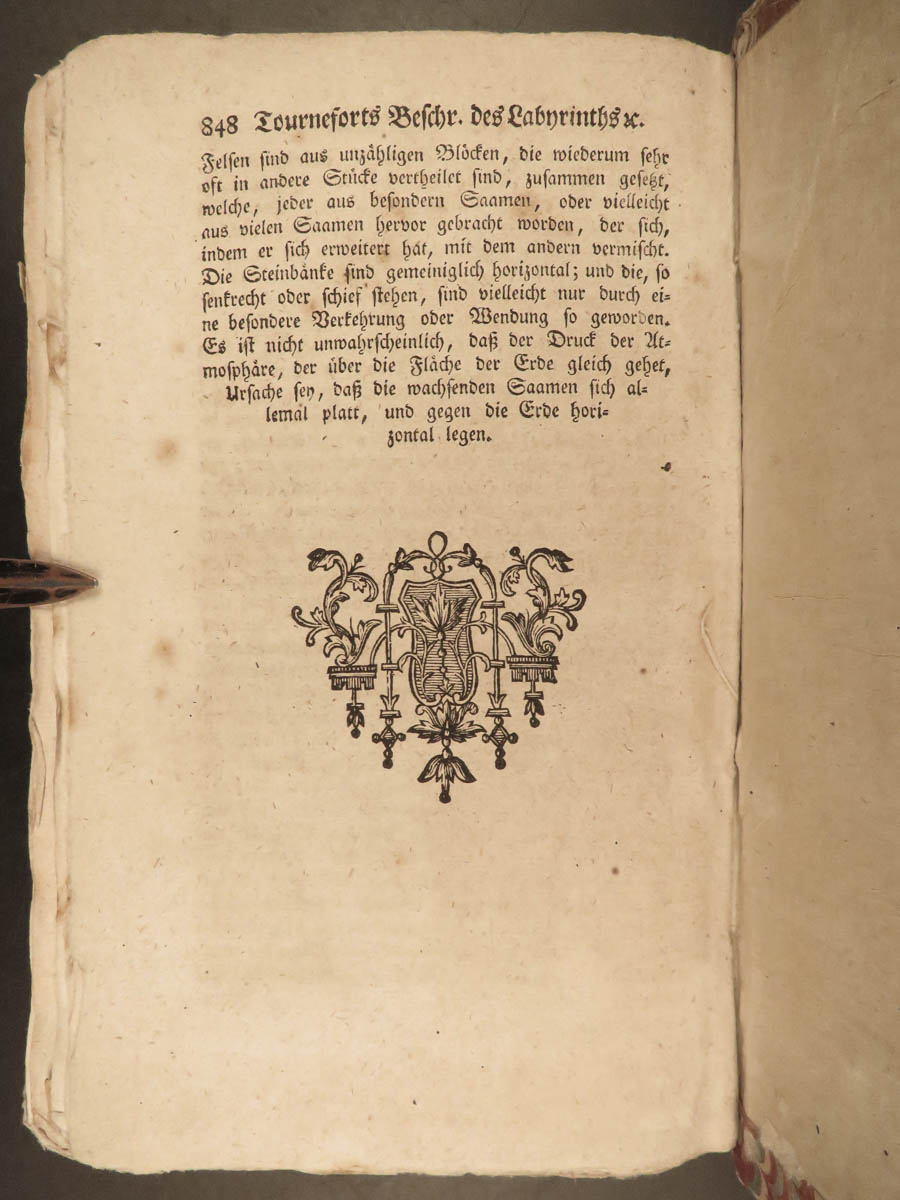 848 Tourneforts Beschr. des Labyrinths ꝛc.
Felsen sind aus unzähligen Blöcken, die wiederum sehr
oft in andere Stücke vertheilet sind, zusammen gesetzt,
welche, jeder aus besondern Saamen, oder vielleicht
aus vielen Saamen hervor gebracht worden, der sich,
indem er sich erweitert hat, mit dem andern vermischt.
Die Steinbänke sind gemeiniglich horizontal; und die, so
senkrecht oder schief stehen, sind vielleicht nur durch ei-
ne besondere Verkehrung oder Wendung so geworden.
Es ist nicht unwahrscheinlich, daß der Druck der At-
mosphäre, der über die Fläche der Erde gleich gehet,
Ursache sey, daß die wachsenden Saamen sich al-
lemal platt, und gegen die Erde hori-
zontal legen.